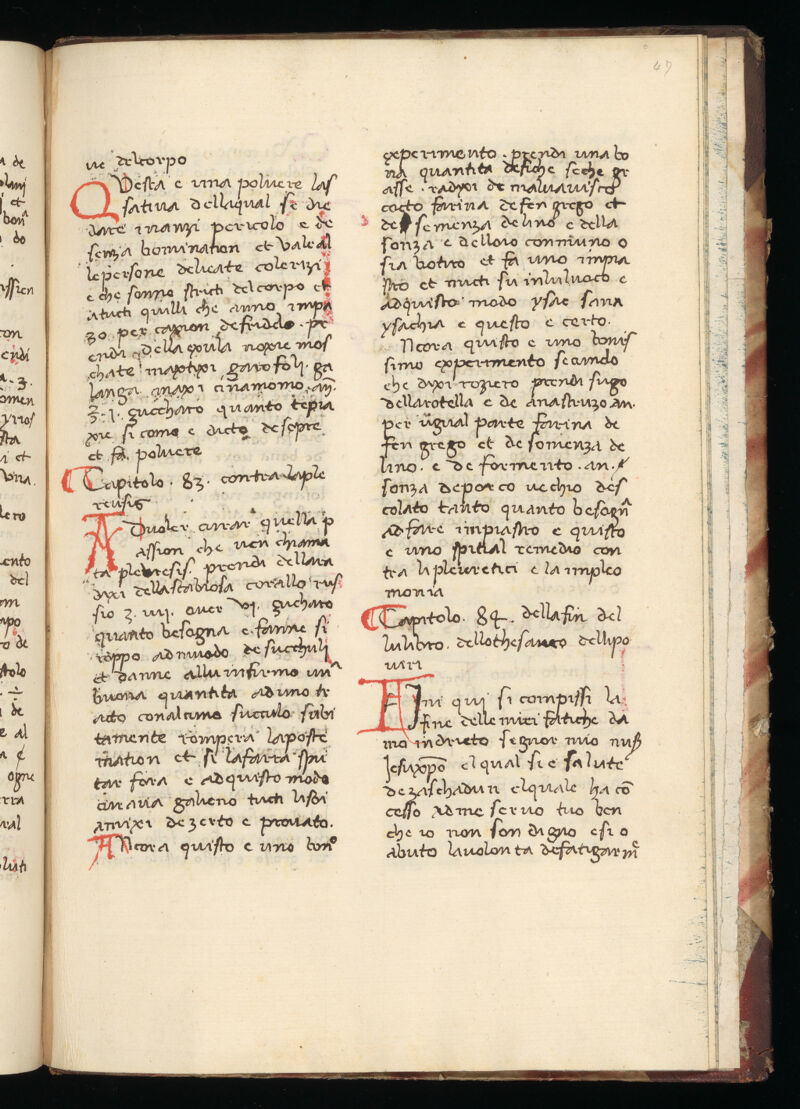 47
ne del corpo
Questa e una poluere las
satiua dellaqual se die
dare inanzi pericolo e de
senza bomination et uale al
le persone delicate colerizi
e che sonno stricti del corpo et
atucti quilli che anno impa
zo per caxion defriddo. pr
endi della noxie mos
chate garofoli. ga
langa. cinamomo. an̄.
ʒ. i. zuccharo quanto te pia
xie si como e dicto de sopre
et fa poluere
Capitolo. 83. contra laple
reusis
A Duoler curar quella p
assion che uen chiama
ta pleuresis. prendi dellara
dixi della scabiosa corallo rus
sio ʒ. iiij. ouer vj. zucharo
quanto besogna e fanne si
roppo ad muodo de succhuli
et danne allu infirmo una
buona quantita ad uno tr
acto con alcuno succulo subi
tamente rompera laposte
mation et si la farra spu
tar fora e ad quisto modo
curaua galieno tucti li soi
amixi de zerto e prouato.
ANcora quisto e uno bono
experimento. prendi una bo
na quantita de fiche seche gr
asse. radixi de maluauisco
cocto farina de fen grego et
de semenza de lino e della
sonza e dell oio commiuno o
sia botiro et fa uno impia
stro et micti su in lu luoco e
ad quisto modo ysae sana
ysachia e questo e certo.
Ncora quisto e uno bonis
simo experimento secundo
che dixi roziero prendi sugo
dellarotella e de anastruzo. an.
per ugual parte farina de
fen grego et de somenza de
lino. e de formento. an. e
sonza deporco uechio des
colato tanto quanto besogna
ad fare impiastro e quisto
e uno spitial remedio con
tra li pleuretici e la impleo
monia
Capitolo. 84. della fin del
lu libro. dello thesauro delli po
ueri
FIni qui si compissi la
fine delle miei fatiche da
mo indrieto segnor mio nusser
Jesuxpo el qual si e salute
de zaschadun el quale ha con
cesso ad me seruo tuo ben
che io non son digno e si o
abuto la uolonta de fatigarme